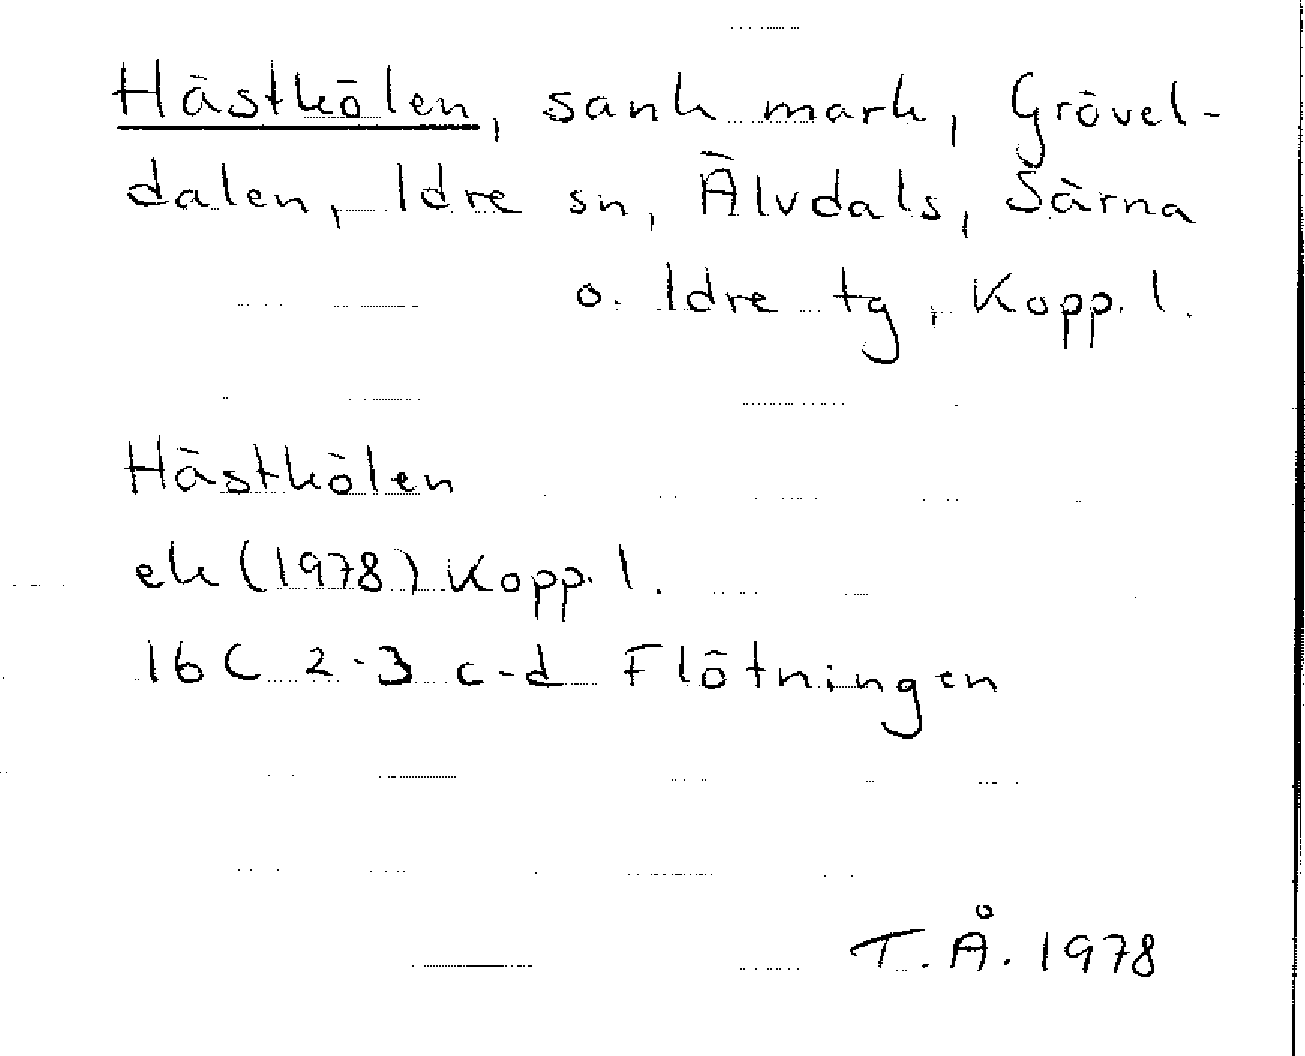 Hästkölen, sank mark, Grövel-
dalen, Idre sn, Älvdals, Särna
o. Idre tg, Kopp. l.
Hästkölen
ek (1978) Kopp. l.
16 C 2-3 c-d Flötningen
T. Å. 1978